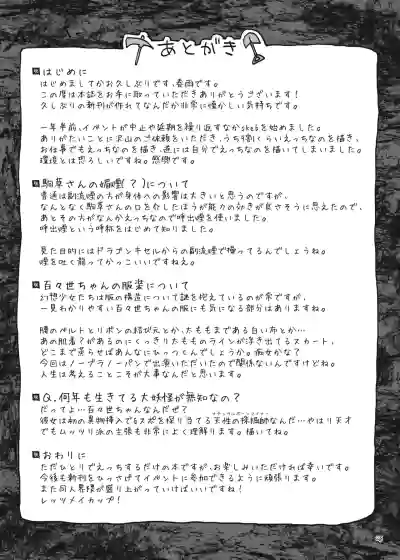 あとがき
はじめに
はじめましてかお久しぶりです、春雨です。
この度は本誌をお手に取っていただきありがとうございます!
久しぶりの新刊が作れてなんだか非常に懐かしい気持ちです。
一年半前、イベントが中止や延期を繰り返すなかskebを始めました。
ありがたいことに沢山のご依頼をいただき、うち9割くらいえっちなのを描き、
お仕事でもえっちなのを描き、遂には自分でえっちなのを描いてしまいました。
環境とは恐ろしいですね。怒働です。
駒草さんの媚煙(?)について
普通は副流煙の方が身体への影響は大きいと思うのですが、
なんとなく駒草さんの口を介したほうが能力の効きが良さそうに思えたので、
あとその方がなんかえっちなので呼出煙を使いました。
呼出煙という呼称をはじめて知りました。
見た目的にはドラゴンキセルからの副流煙で操ってるんでしょうね。
煙を吐く龍ってかっこいいですねえ。
百々世ちゃんの服装について
幻想少女たちは服の構造について謎を抱えているのが常ですが、
一見わかりやすい百々世ちゃんの服にも気になる部分はありますね。
腰のベルトとリボンの結び元とか、太ももまである白い布とか…
あの肌着?があるのにくっきり太もものラインが浮き出てるスカート、
どこまで蒸らせばあんなにひっつくんでしょうか。痴女かな?
今回はノーブラノーパンで出演いただいたので関係ないんですけどね。
人生は考えることこそが大事なんだと思います。
Q.何年も生きてる大妖怪が無知なの?
だってよ…百々世ちゃんなんだぜ?
彼女は初の異物挿入でもスポを探り当てる天性の採掘師なんだ…やはり天才
でもムッツリ派の主張も非常によく理解ります。描いてね。
おわりに
ただひとりでえっちするだけの本ですが、お楽しみいただければ幸いです。
今後も新刊をひっさげてイベントに参加できるように頑張ります。
また同人界隈が盛り上がっていけばいいですね!
レッツメイカップ!